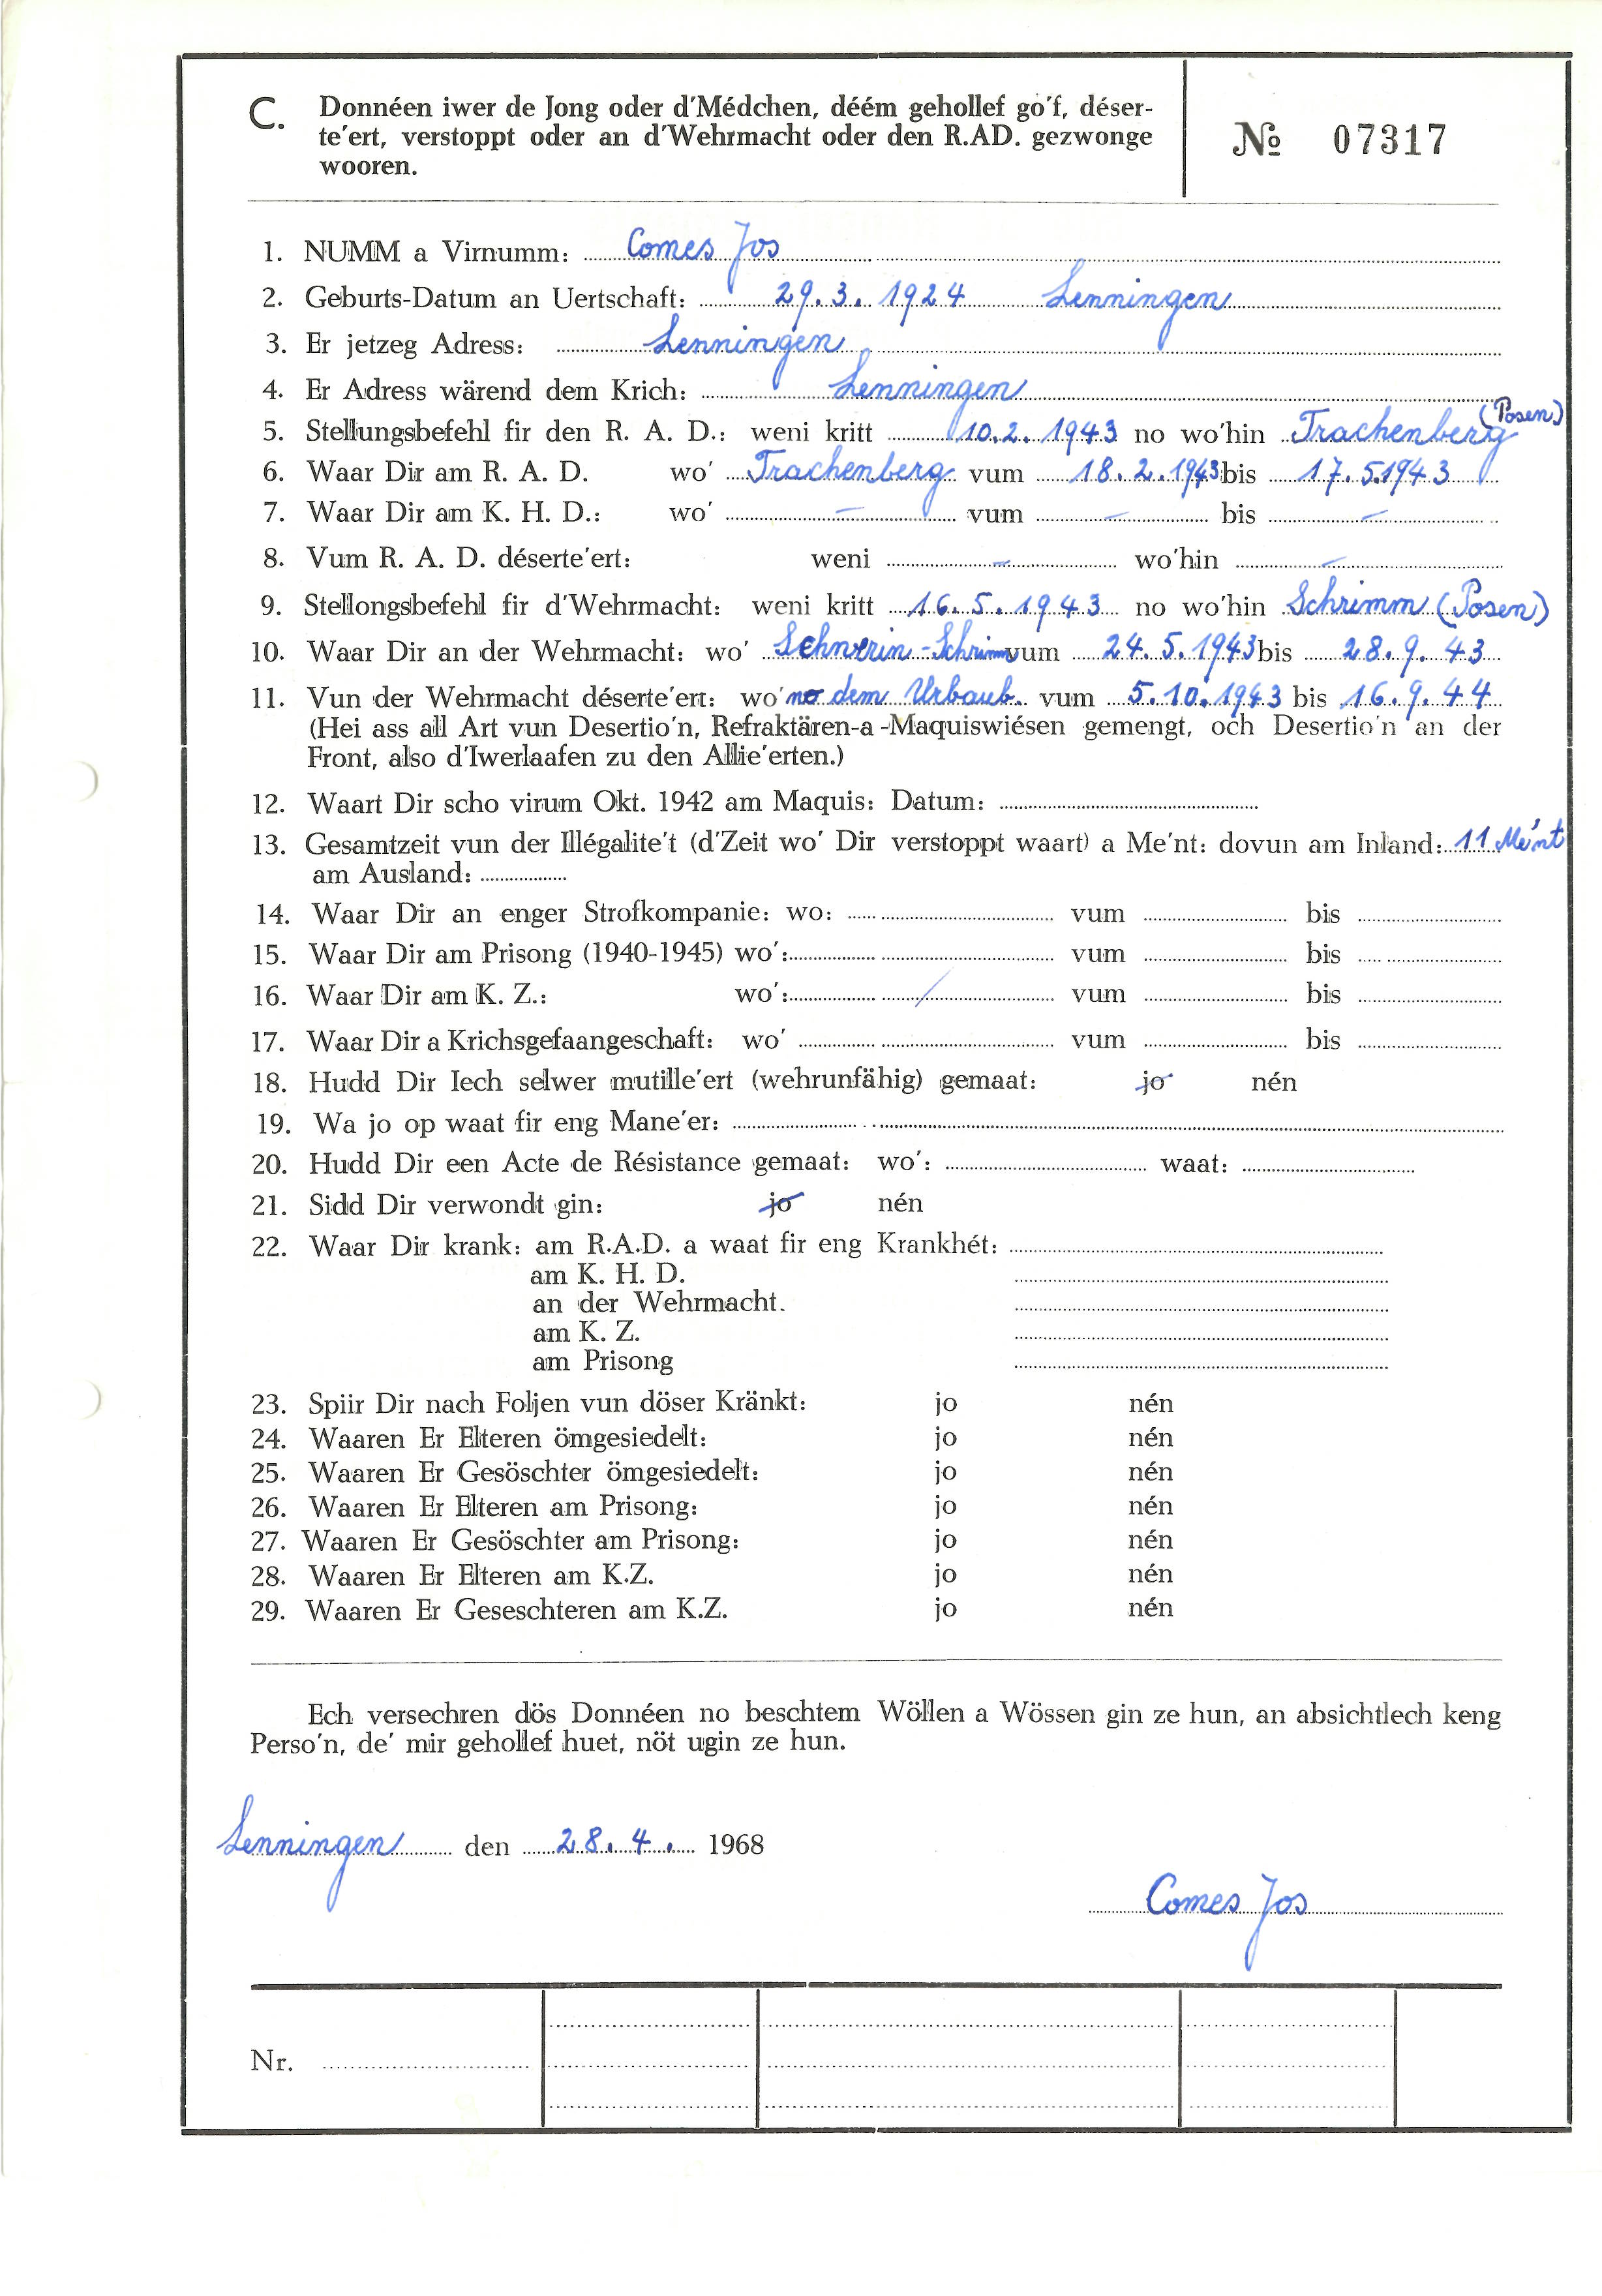 C. Donnéen iwer de Jong oder d'Médchen, déém gehollef go'f, déser-
te'ert, verstoppt oder an d'Wehrmacht oder den R.AD. gezwonge
wooren.
№ 07317
1. NUMM a Virnumm: Comes Jos
2. Geburts-Datum an Uertschaft: 29.3.1924 Lenningen
3. Er jetzeg Adress: Lenningen
4. Er Adress wärend dem Krich: Lenningen
5. Stellungsbefehl fir den R. A. D.: weni kritt 10.2.1943 no wo'hin Trachenberg (Posen)
6. Waar Dir am R. A. D. wo' Trachenberg vum 18.2.1943 bis 17.5.1943
7. Waar Dir am K. H. D.: wo' – vum – bis –
8. Vum R. A. D. déserte'ert: weni – wo'hin –
9. Stellongsbefehl fir d'Wehrmacht: weni kritt 16.5.1943 no wo'hin Schrimm (Posen)
10. Waar Dir an der Wehrmacht: wo' Schwerin-Schrimm vum 24.5.1943 bis 28.9.43
11. Vun der Wehrmacht déserte'ert: wo' no dem Urbaub vum 5.10.1943 bis 16.9.44
(Hei ass all Art vun Desertio'n, Refraktären-a-Maquiswiésen gemengt, och Desertio'n an der
Front, also d'Iwerlaafen zu den Allie'erten.)
12. Waart Dir scho virum Okt. 1942 am Maquis: Datum:
13. Gesamtzeit vun der Illégalite't (d'Zeit wo' Dir verstoppt waart) a Me'nt: dovun am Inland: 11 Me'nt
am Ausland:
14. Waar Dir an enger Strofkompanie: wo: vum bis
15. Waar Dir am Prisong (1940-1945) wo': vum bis
16. Waar Dir am K. Z.: wo': / vum bis
17. Waar Dir a Krichsgefaangeschaft: wo' vum bis
18. Hudd Dir Iech selwer mutille'ert (wehrunfähig) gemaat: jo nén
19. Wa jo op waat fir eng Mane'er:
20. Hudd Dir een Acte de Résistance gemaat: wo': waat:
21. Sidd Dir verwondt gin: jo nén
22. Waar Dir krank: am R.A.D. a waat fir eng Krankhét:
am K. H. D.
an der Wehrmacht.
am K. Z.
am Prisong
23. Spiir Dir nach Foljen vun döser Kränkt: jo nén
24. Waaren Er Elteren ömgesiedelt: jo nén
25. Waaren Er Gesöschter ömgesiedelt: jo nén
26. Waaren Er Elteren am Prisong: jo nén
27. Waaren Er Gesöschter am Prisong: jo nén
28. Waaren Er Elteren am K.Z. jo nén
29. Waaren Er Geseschteren am K.Z. jo nén
Ech versechren dös Donnéen no beschtem Wöllen a Wössen gin ze hun, an absichtlech keng
Perso'n, de' mir gehollef huet, nöt ugin ze hun.
Lenningen den 28.4. 1968
Comes Jos
Nr.